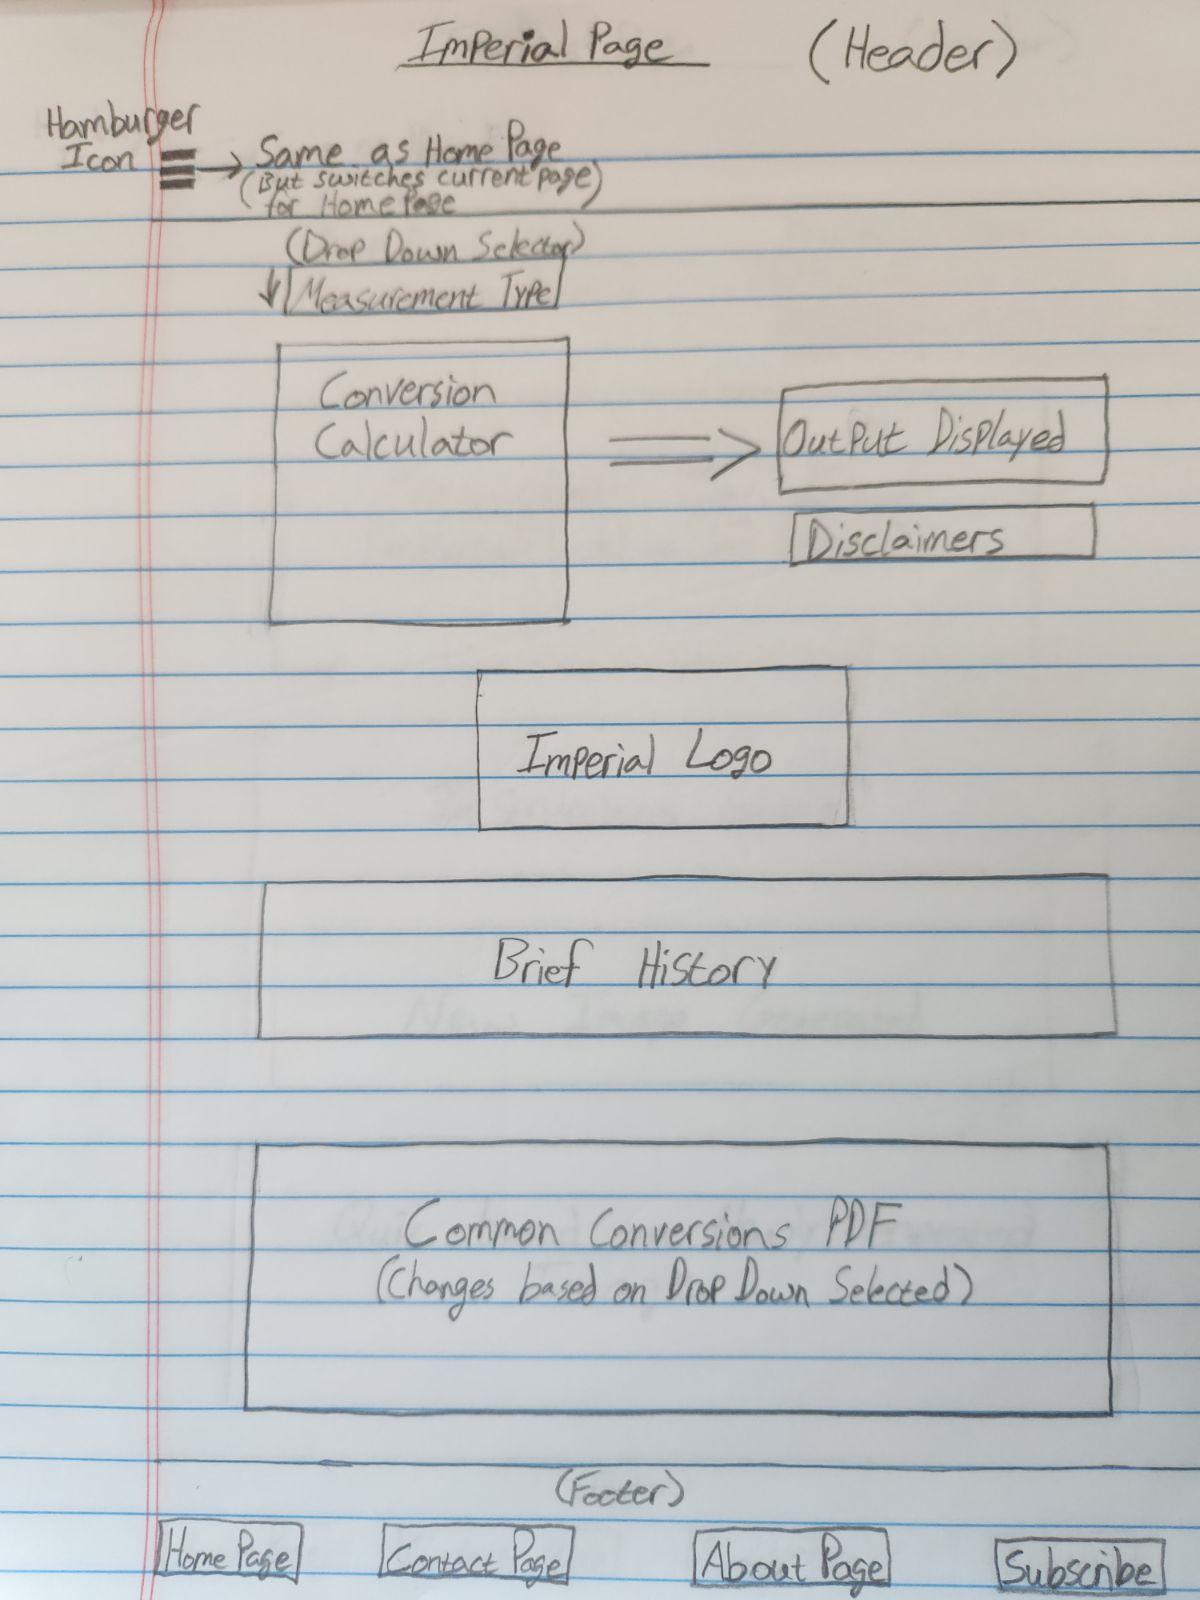 Imperial Page (Header)
Hamburger
Icon
Same as Home Page
(But switches current page)
for Home Page
(Drop Down Selector)
Measurement Type
Conversion
Calculator
Output Displayed
Disclaimers
Imperial Logo
Brief History
Common Conversions PDF
(Changes based on Drop Down Selected)
(Footer)
Home Page Contact Page About Page Subscribe